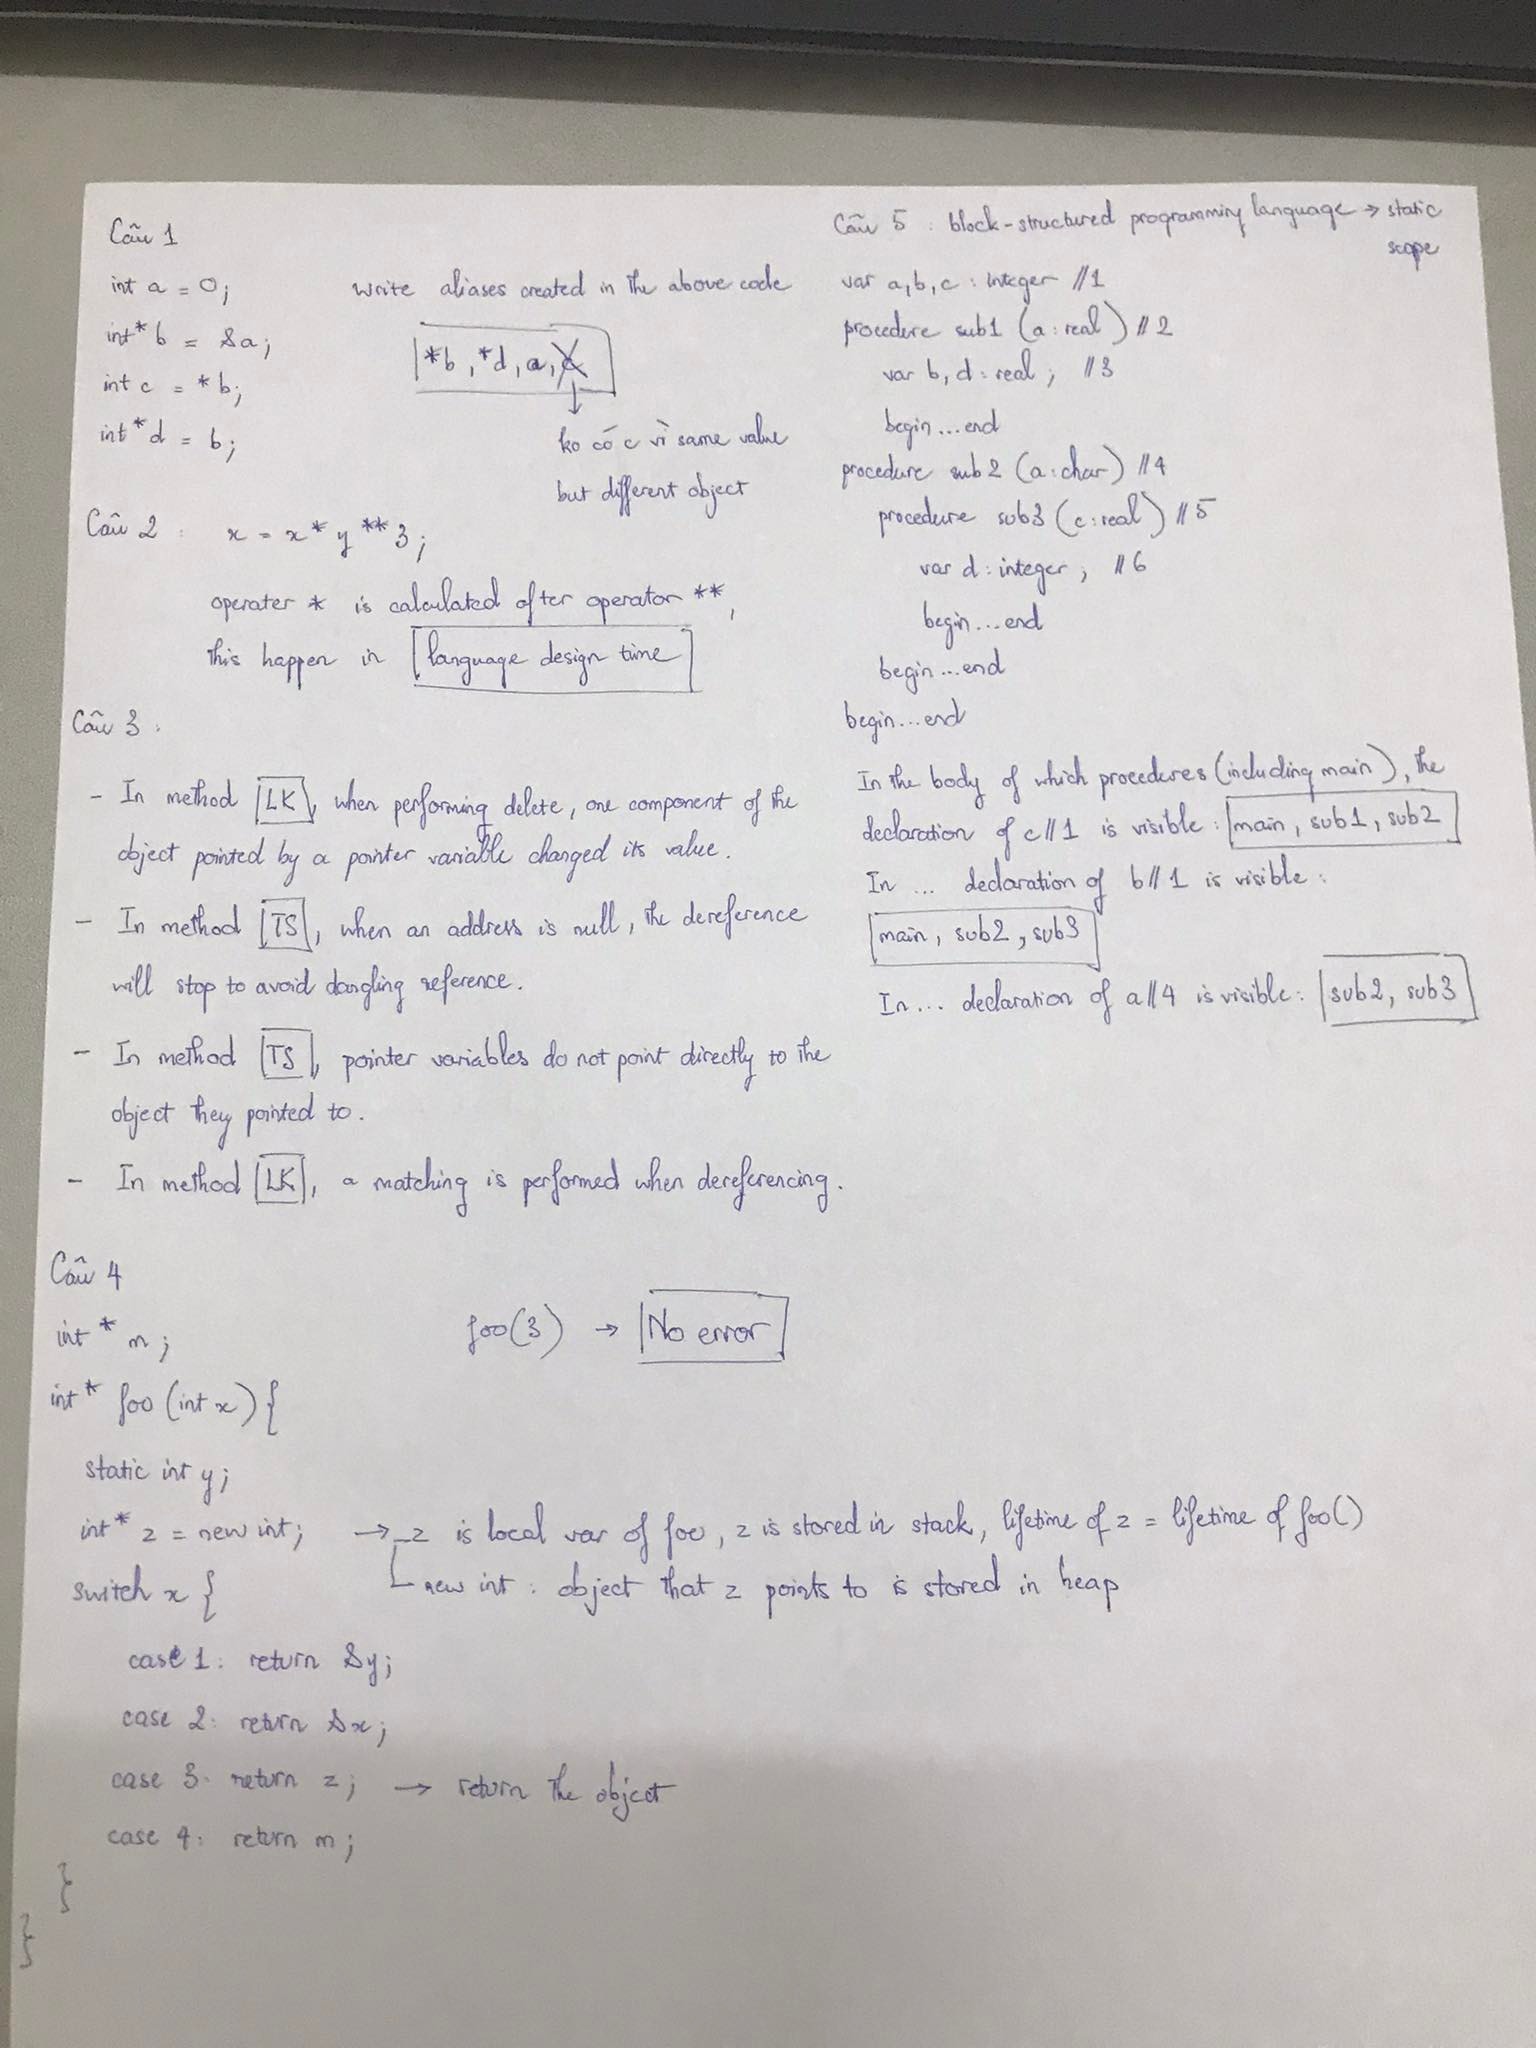 Câu 1
int a = 0;
int* b = &a;
int c = *b;
int* d = b;
write aliases created in the above code
*b, *d, a, c
ko có c vì same value
but different object
Câu 2 : x = x * y ** 3;
operater * is calculated after operator **,
this happen in language design time
Câu 3 :
- In method LK, when performing delete, one component of the
object pointed by a pointer variable changed its value.
- In method TS, when an address is null, the dereference
will stop to avoid dangling reference.
- In method TS, pointer variables do not point directly to the
object they pointed to.
- In method LK, a matching is performed when dereferencing.
Câu 4
int * m;
int* foo (int x) {
static int y;
int* z = new int;
switch x {
case 1: return &y;
case 2: return &x;
case 3: return z; → return the object
case 4: return m;
}
}
foo(3) → No error
→ z is local var of foo, z is stored in stack, lifetime of z = lifetime of foo()
new int : object that z points to is stored in heap
Câu 5 : block-structured programming language → static
scope
var a,b,c : integer //1
procedure sub1 (a: real) //2
var b, d: real; //3
begin...end
procedure sub2 (a: char) //4
procedure sub3 (c: real) //5
var d: integer; //6
begin...end
begin...end
begin...end
In the body of which procedures (including main), the
declaration of c//1 is visible : main, sub1, sub2
In ... declaration of b//1 is visible :
main, sub2, sub3
In ... declaration of a//4 is visible: sub2, sub3